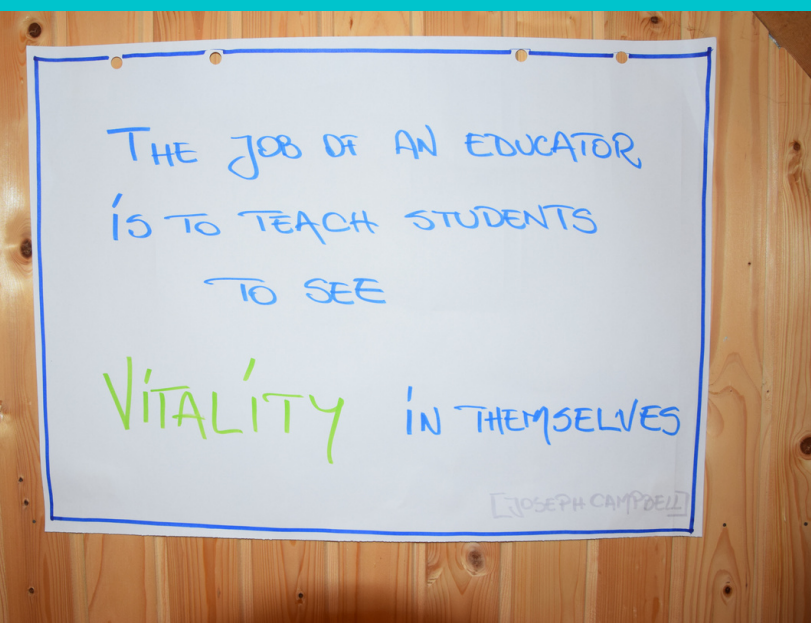 THE JOB OF AN EDUCATOR
IS TO TEACH STUDENTS
TO SEE
VITALITY IN THEMSELVES
[JOSEPH CAMPBELL]